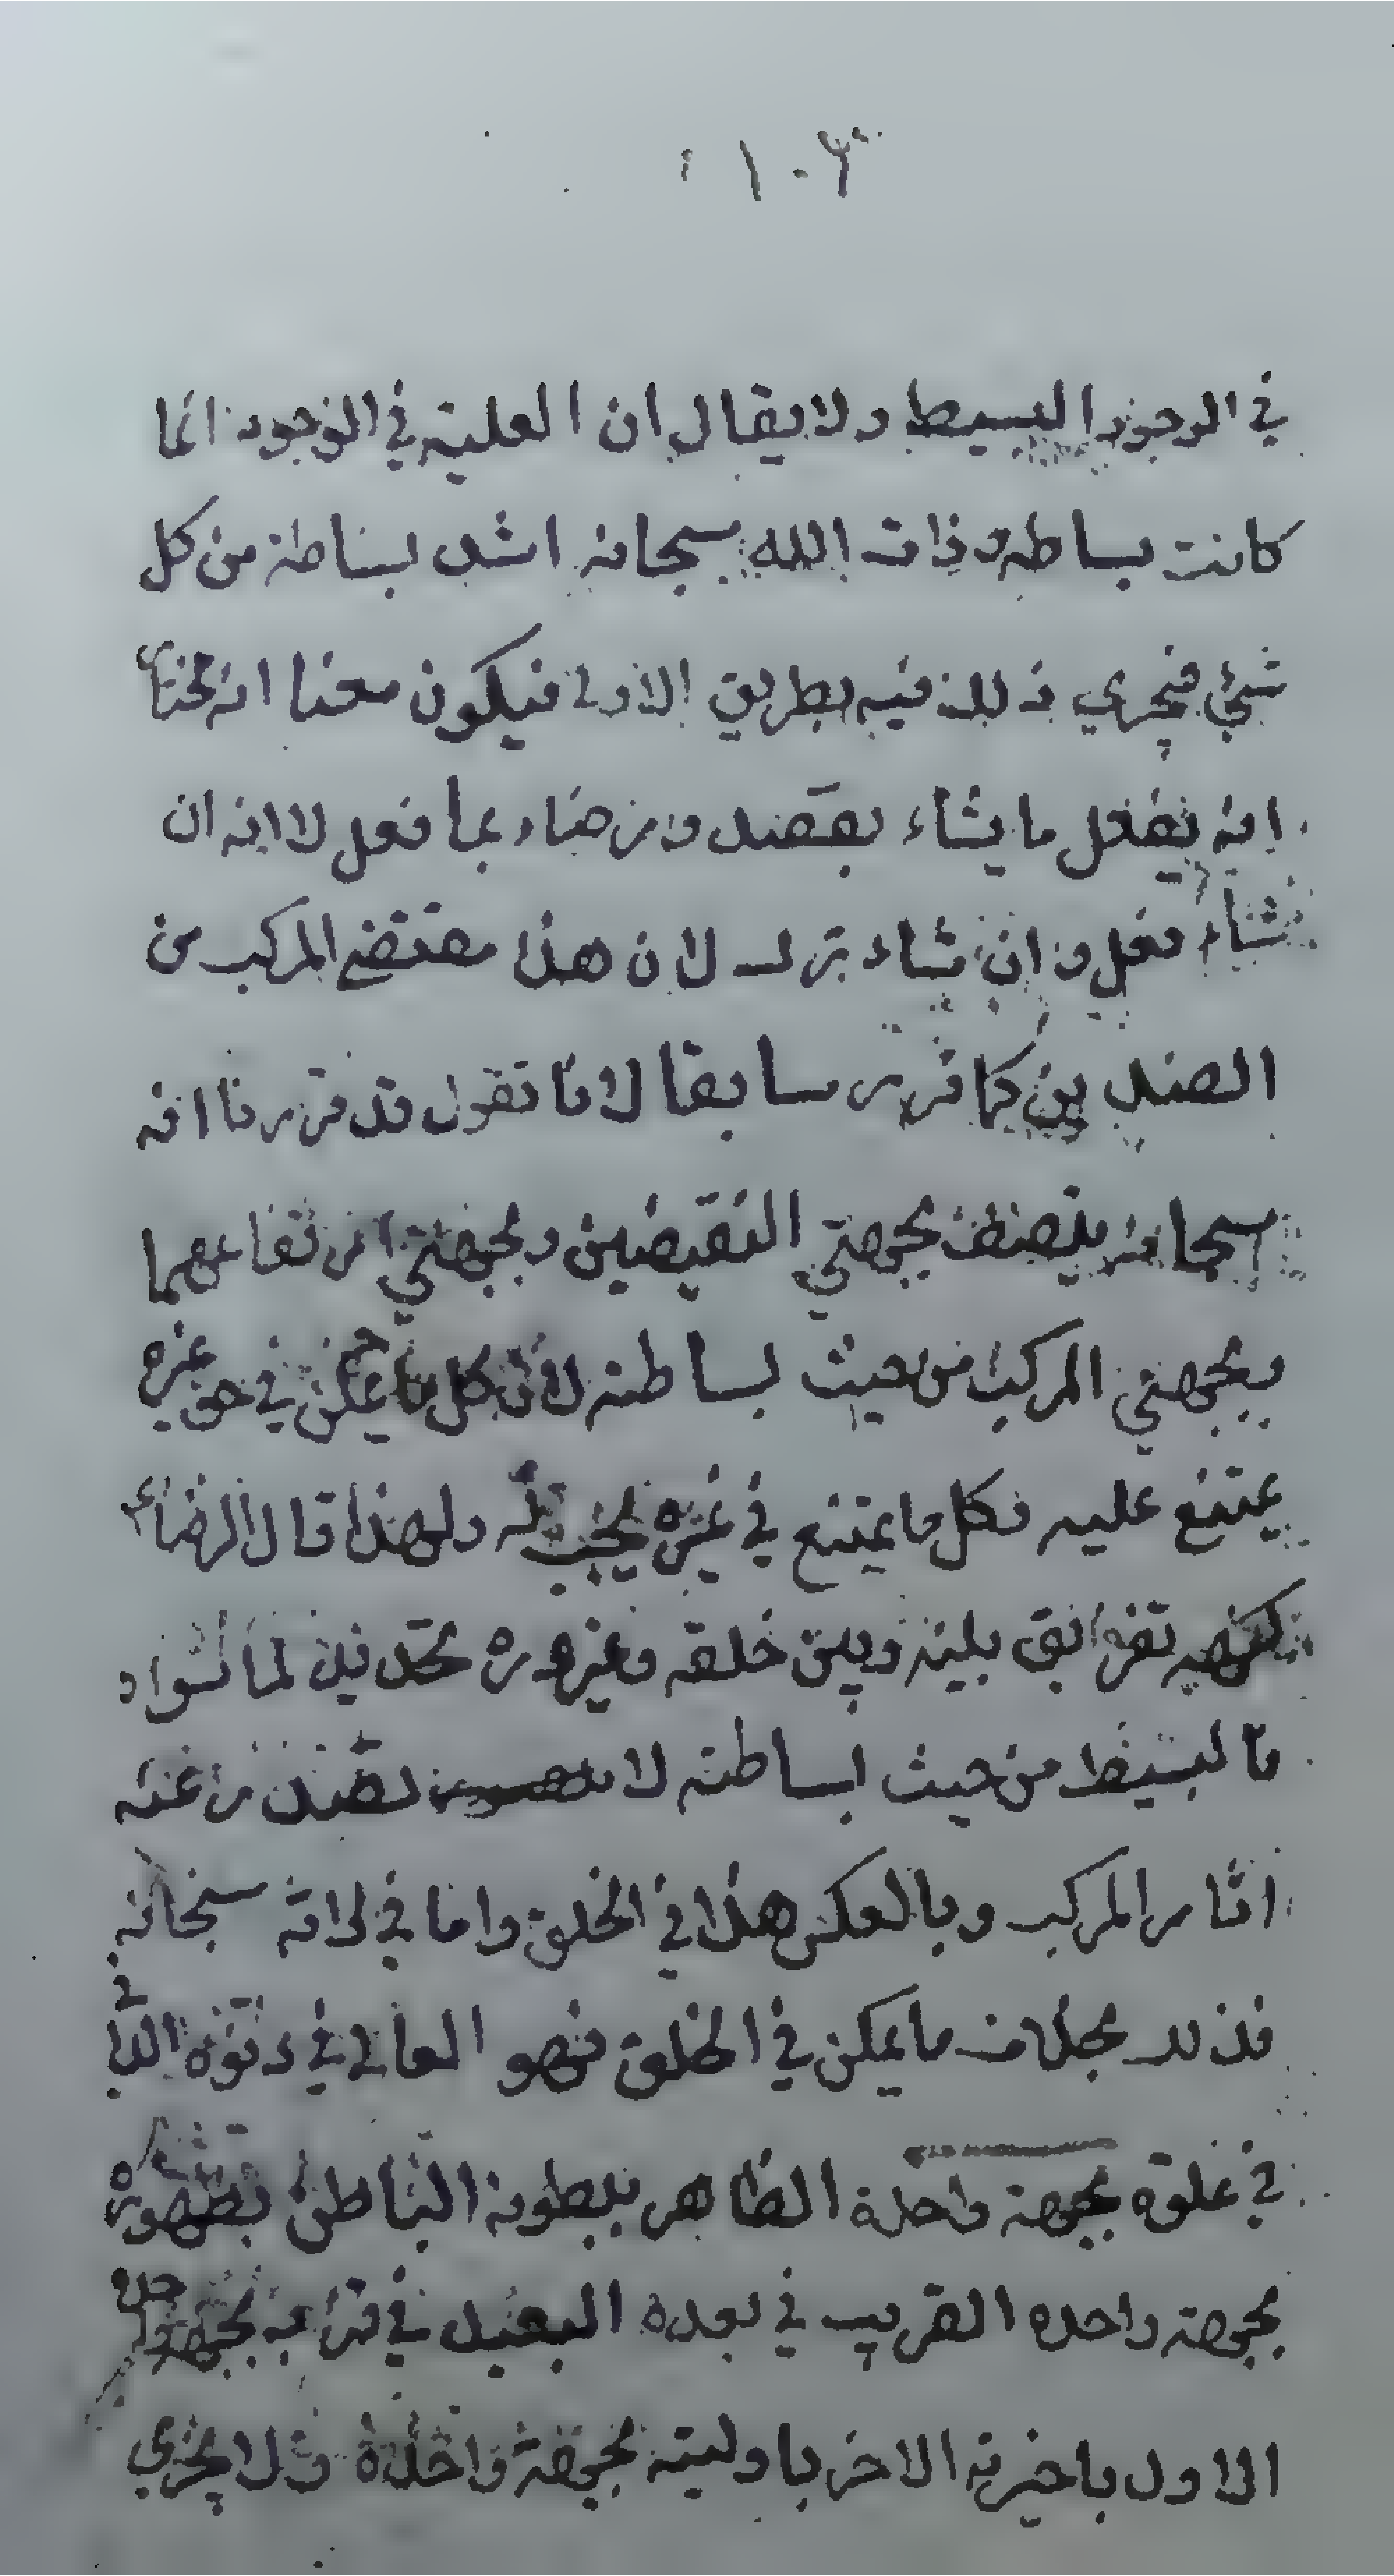 ١٠٣
في الوجود البسيط ولا يقال ان العلية في الوجود انما
كانت بساطه وذات الله سبحانه اشد بساطة من كل
شئ فيجري ذلك فيه بطريق الاولى فيكون معنا انه مختار
انه يفعل ما يشاء بقصد ورضاء بما فعل لا انه ان
شاء فعل وان شاء ترك لان هذا مقتضى المركب من
الضدين كما قرر سابقا لانا نقول قد قررنا انه
سبحانه يتصف بجهتي النقيضين وبجهتي ارتفاعهما
وبجهتي المركب من حيث بساطته لان كل ما يمكن في حق غيره
يمتنع عليه وكل ما يمتنع في غيره يجب له ولهذا قال الرضا ع
كنهه تفريق بينه وبين خلقه وغيوره تحديد لما سواه
فالبسيط من حيث بساطته لا تصدر عنه
اثار المركب وبالعكس هذا في الخلق واما في ذاته سبحانه
فذلك بخلاف ما يمكن في الخلق فهو العالي في دنوه الداني
في علوه بجهة واحدة الظاهر ببطونه الباطن بظهوره
بجهة واحده القريب في بعده البعيد في قربه بجهة واحده
الاول باخريته الاخر باوليته بجهة واحدة ولا يجري